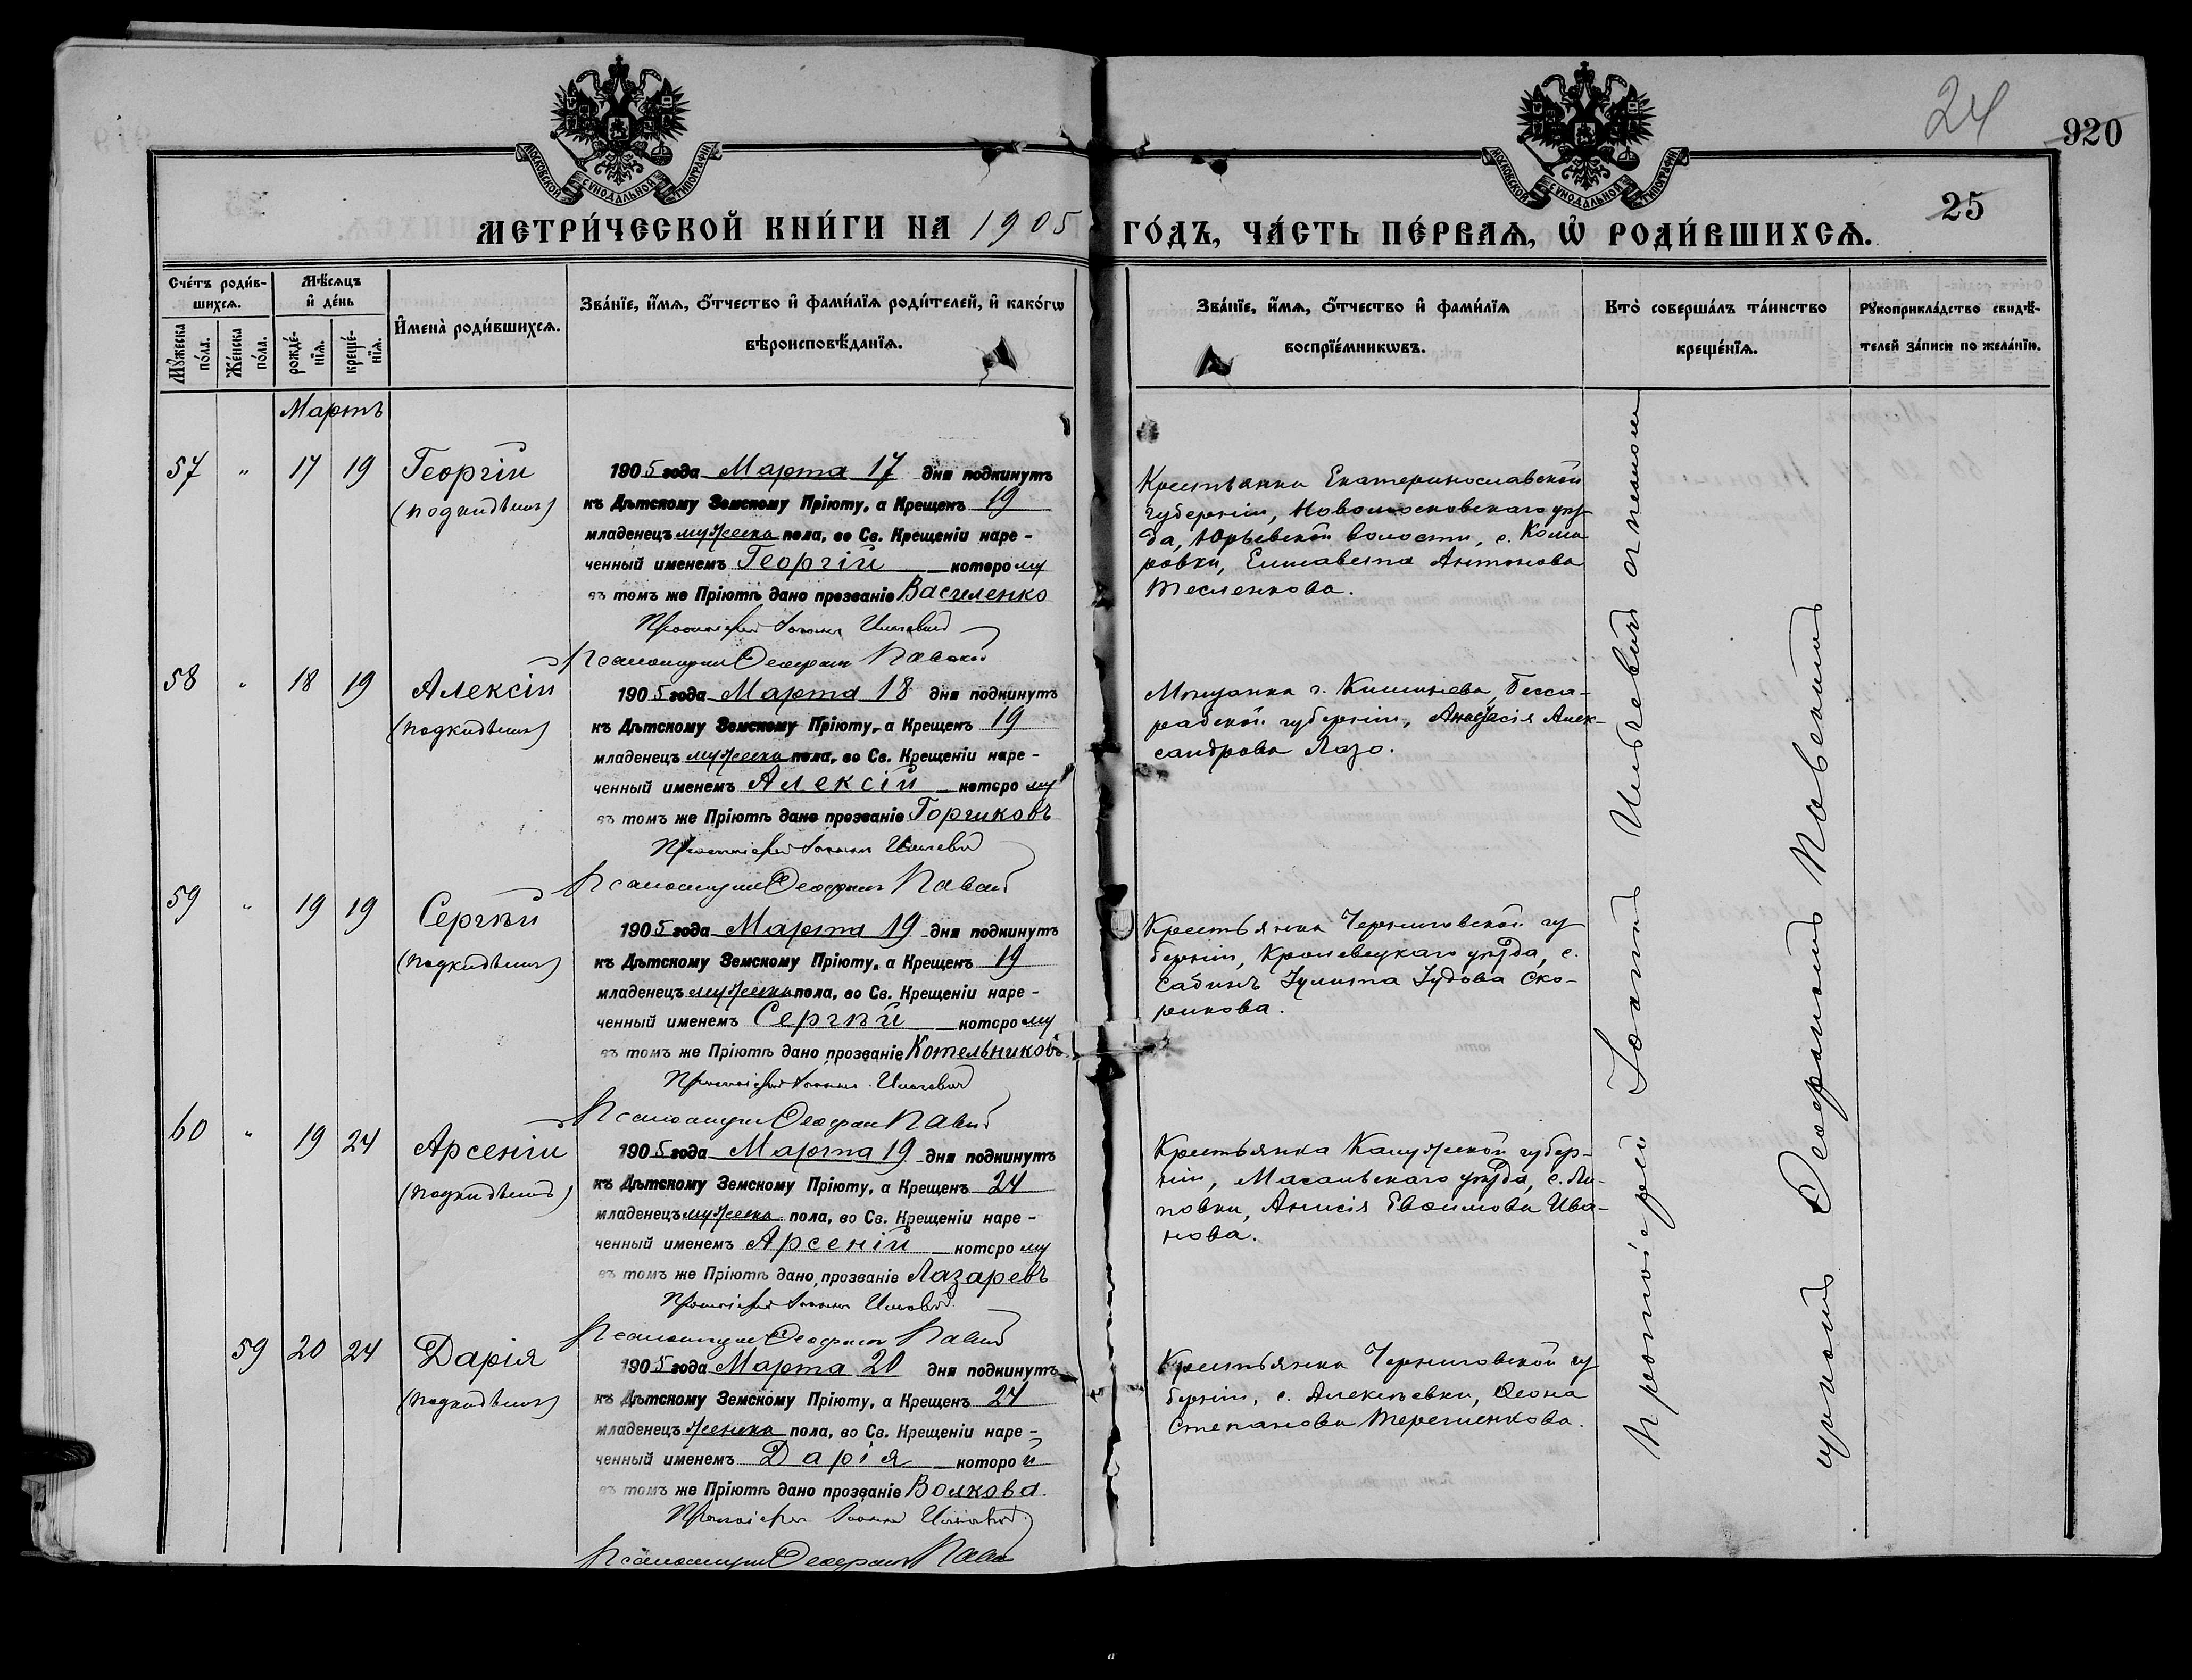 24
920
25
МОСКОВСКОЙ СѴНОДАЛЬНОЙ ТИПОГРАФІИ
МОСКОВСКОЙ СѴНОДАЛЬНОЙ ТИПОГРАФІИ
МЕТРИ́ЧЕСКОЙ КНИ́ГИ НА 1905 ГО́ДЪ, ЧА́СТЬ ПЕ́РВАѦ, Ѡ҆ РОДИ́ВШИХСѦ.
Сче́тъ роди́в-
шихсѧ.
Мꙋ́жеска по́ла.
Же́нска по́ла.
Мѣ́сѧцъ
и҆ де́нь
рожде́-нїѧ.
креще́-нїѧ.
И҆мена̀ роди́вшихсѧ.
Зва́нїе, и҆́мѧ, ѻ҆́тчество и҆ фами́лїѧ роди́телей, и҆ како́гѡ
вѣроисповѣ́данїѧ.
Зва́нїе, и҆́мѧ, ѻ҆́тчество и҆ фами́лїѧ
воспрїе́мникѡвъ.
Кто̀ соверша́лъ та́инство
креще́нїѧ.
Рꙋкоприкла́дство свидѣ́-
телей за́писи по жела́нїю.
Мартъ
57 " 17 19 Георгій
(подкидышъ)
1905 года Марта 17 дня подкинутъ
къ Дѣтскому Земскому Пріюту, а Крещенъ 19
младенецъ мужеска пола, во Св. Крещеніи наре-
ченный именемъ Георгій которому
въ томъ же Пріютѣ дано прозваніе Василенко
Протоіерей Іоаннъ Ильчевичъ
Псаломщикъ Ѳеофанъ
Крестьянка Екатеринославской
губерніи, Новомосковскаго уѣз-
да, Юрьевской волости, с.
ровки, Елисавета Антонова
Тесленкова.
58 " 18 19 Алексій
(подкидышъ)
1905 года Марта 18 дня подкинутъ
къ Дѣтскому Земскому Пріюту, а Крещенъ 19
младенецъ мужеска пола, во Св. Крещеніи наре-
ченный именемъ Алексій которому
въ томъ же Пріютѣ дано прозваніе Горчиковъ
Протоіерей Іоаннъ Ильчевичъ
Псаломщикъ Ѳеофанъ
Мѣщанка г. Кишинева, Бесса-
рабской губерніи, Анастасія Алек-
сандрова Лазо.
59 " 19 19 Сергѣй
(подкидышъ)
1905 года Марта 19 дня подкинутъ
къ Дѣтскому Земскому Пріюту, а Крещенъ 19
младенецъ мужеска пола, во Св. Крещеніи наре-
ченный именемъ Сергѣй которому
въ томъ же Пріютѣ дано прозваніе Котельниковъ
Протоіерей Іоаннъ Ильчевичъ
Псаломщикъ Ѳеофанъ
Крестьянка Черниговской гу
берніи, Кролевецкаго уѣзда, с.
Сабинъ Іулитта Іудова Ско-
рикова.
60 " 19 24 Арсеній
(подкидышъ)
1905 года Марта 19 дня подкинутъ
къ Дѣтскому Земскому Пріюту, а Крещенъ 24
младенецъ мужеска пола, во Св. Крещеніи наре-
ченный именемъ Арсеній которому
въ томъ же Пріютѣ дано прозваніе Лазаревъ
Протоіерей Іоаннъ Ильчевичъ
Псаломщикъ Ѳеофанъ
Крестьянка Калужской губер-
ніи, Масальскаго уѣзда, с. Ли-
повки, Анисія Евѳимова Ива-
нова.
59 20 24 Дарія
(подкидышъ)
1905 года Марта 20 дня подкинутъ
къ Дѣтскому Земскому Пріюту, а Крещенъ 24
младенецъ женска пола, во Св. Крещеніи наре-
ченный именемъ Дарія которой
въ томъ же Пріютѣ дано прозваніе Волкова.
Протоіерей Іоаннъ Ильчевичъ
Псаломщикъ Ѳеофанъ
Крестьянка Черниговской гу
берніи, с. Алексѣевки, Ѳеона
Степанова Терешенкова.
Протоіерей Іоаннъ Ильчевичъ съ псаломщикомъ Ѳеофаномъ